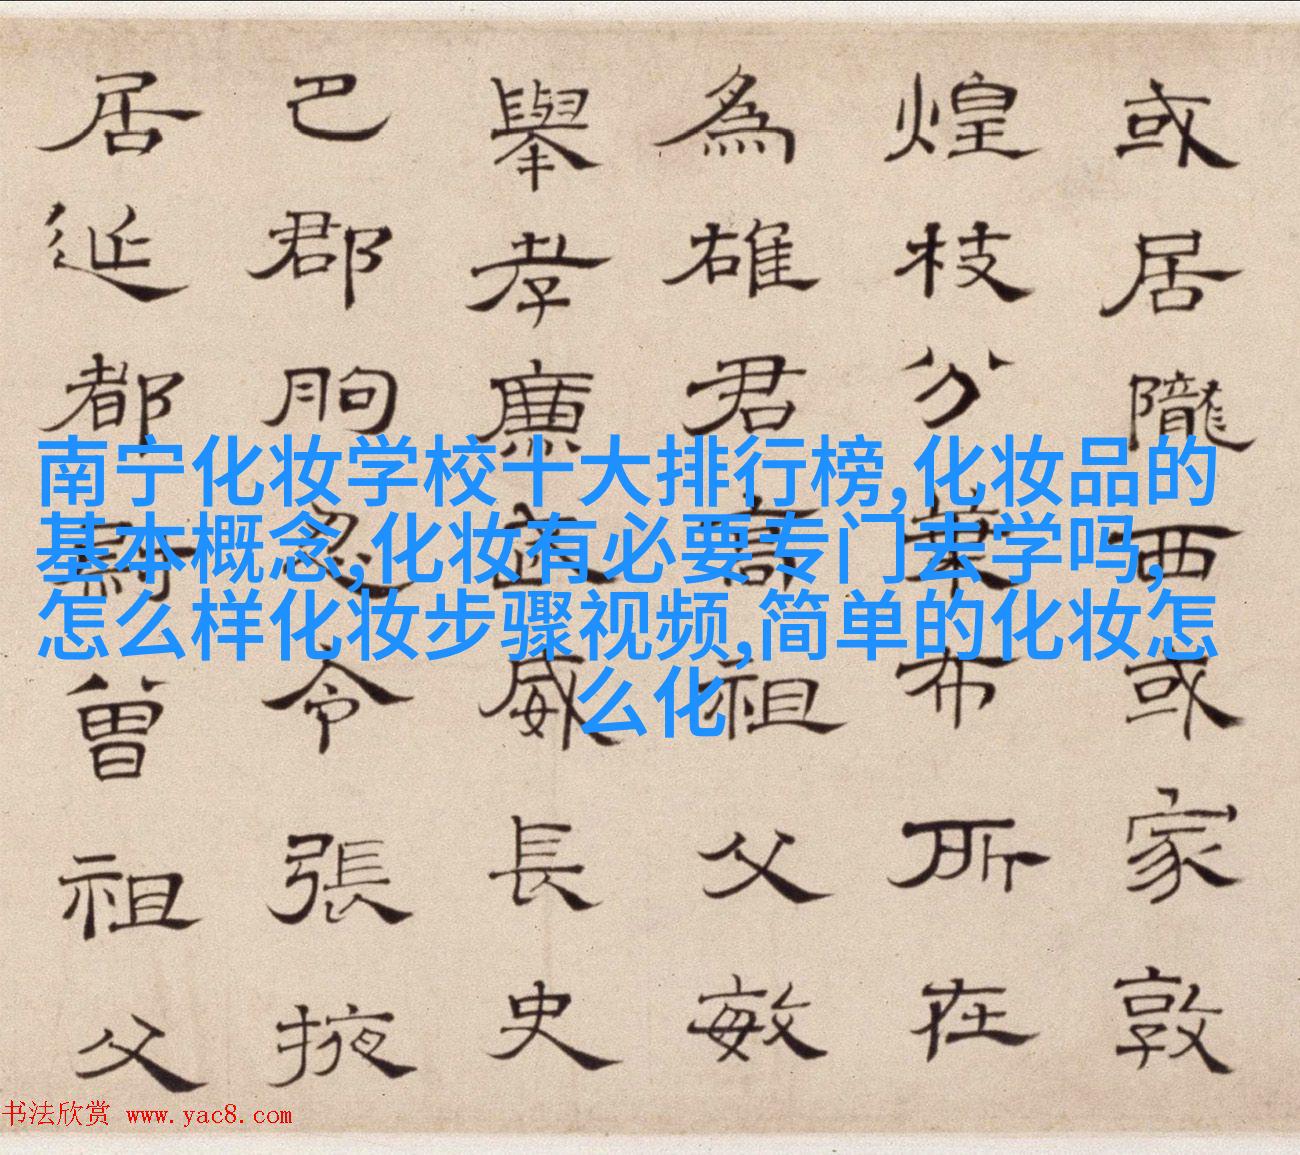 或居隴西或家敦
煌枝分葉布所在
為雄君高祖父敏
舉孝廉武威長史
巴郡朐忍令張掖
居延都尉曾祖父
南宁化妆学校十大排行榜,化妆品的
基本概念,化妆有必要专门去学吗,
怎么样化妆步骤视频,简单的化妆怎
么化
书法欣赏 www.yac8.com